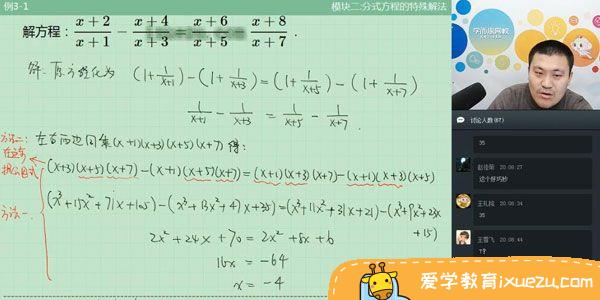 例3-1
模块二:分式方程的特殊解法
解方程: (x+2)/(x+1) − (x+4)/(x+3) x+6 x+8/(x+7).
解: 原方程化为 (1+1/(x+1))−(1+1/(x+3))=(1+1/(x+5))−(1+1/(x+7))
1/(x+1) − 1/(x+3) = 1/(x+5) − 1/(x+7).
方法二: 左右两边同乘(x+1)(x+3)(x+5)(x+7)得:
(x+3)(x+5)(x+7)−(x+1)(x+5)(x+7)=(x+1)(x+3)(x+7)−(x+1)(x+3)(x+5)
方法一.
(x³+15x²+71x+105)−(x³+13x²+47x+35)=(x³+11x²+31x+21)−(x³+9x²+23x
+15)
2x²+24x+70=2x²+8x+6
16x=−64
x=−4
学而思网校
讨论人数(87)
35
20:08:27
这个好巧妙
王礼
20:08:34
35
王雪飞
20:08:44
爱学教育ixuezu.com